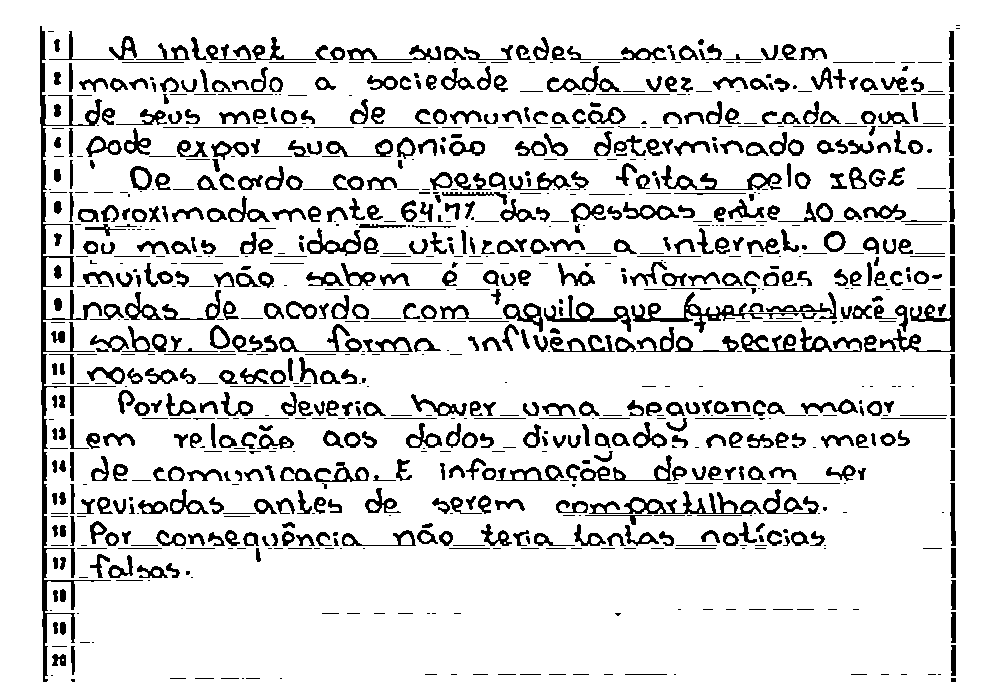 1 A internet com suas redes sociais, vem
2 manipulando a sociedade cada vez mais. Através
3 de seus meios de comunicação, onde cada qual
4 pode expor sua opnião sob determinado assunto.
5 De acordo com pesquisas feitas pelo IBGE
6 aproximadamente 64,7% das pessoas entre 10 anos
7 ou mais de idade utilizaram a internet. O que
8 muitos não sabem é que há informações selecio-
9 nadas de acordo com aquilo que (queremos) você quer
10 saber. Dessa forma influênciando secretamente
11 nossas escolhas.
12 Portanto deveria haver uma segurança maior
13 em relação aos dados divulgados nesses meios
14 de comunicação. E informações deveriam ser
15 revisadas antes de serem compartilhadas.
16 Por consequência não teria tantas notícias
17 falsas.
18
19
20